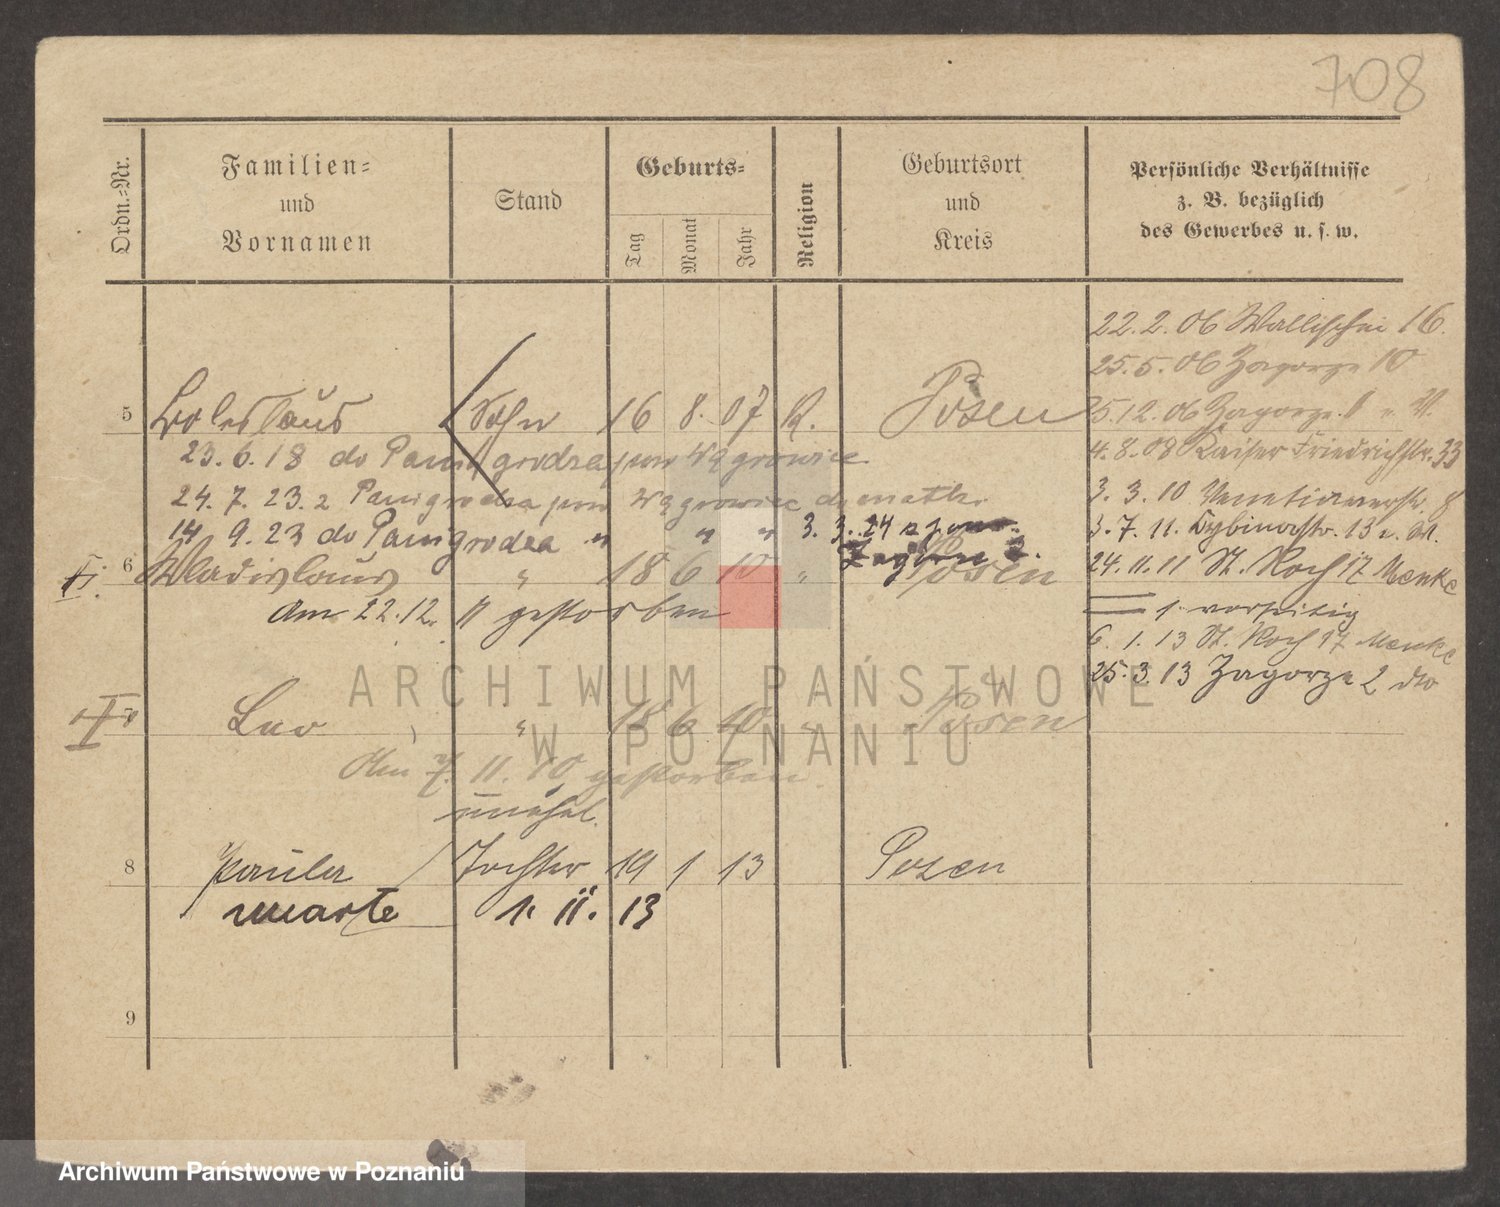 708
Ordn.=Nr.
Familien=
und
Vornamen
Stand
Geburts=
Tag
Monat
Jahr
Religion
Geburtsort
und
Kreis
Persönliche Verhältnisse
z. B. bezüglich
des Gewerbes u. s. w.
22.2.06 Wallischei 16.
25.5.06 Zagorze 10
5 Boleslaus Sohn 16 8. 07 K. Posen
5.12.06 Zagorze
23.6.18 do Panigrodza pow Wągrowiec
4.8.08 Kaiser Friedrichstr. 33
24.7.23 z Panigrodza pow Wągrowiec do matki
3.3.10 Venetianerstr. 8
14 9.23 do Panigrodza " " " 3.3.24 z
3.7.11. Dybinastr. 13
Zagórze 2.
6 Wladislaus " 18 6 10 " Posen
24.11.11 St. Roch 17 Menke
am 22.12. 11 gestorben
1. vorseitig
6.1.13 St. Roch 17 Menke
25.3.13 Zagorze 2 do
7 Leo " 18 6 10 " Posen
Am 7. 11. 10 gestorben
unehel.
8 Paula Tochter 19 1 13 Posen
1. 11. 13
9
ARCHIWUM PAŃSTWOWE
W POZNANIU
Archiwum Państwowe w Poznaniu